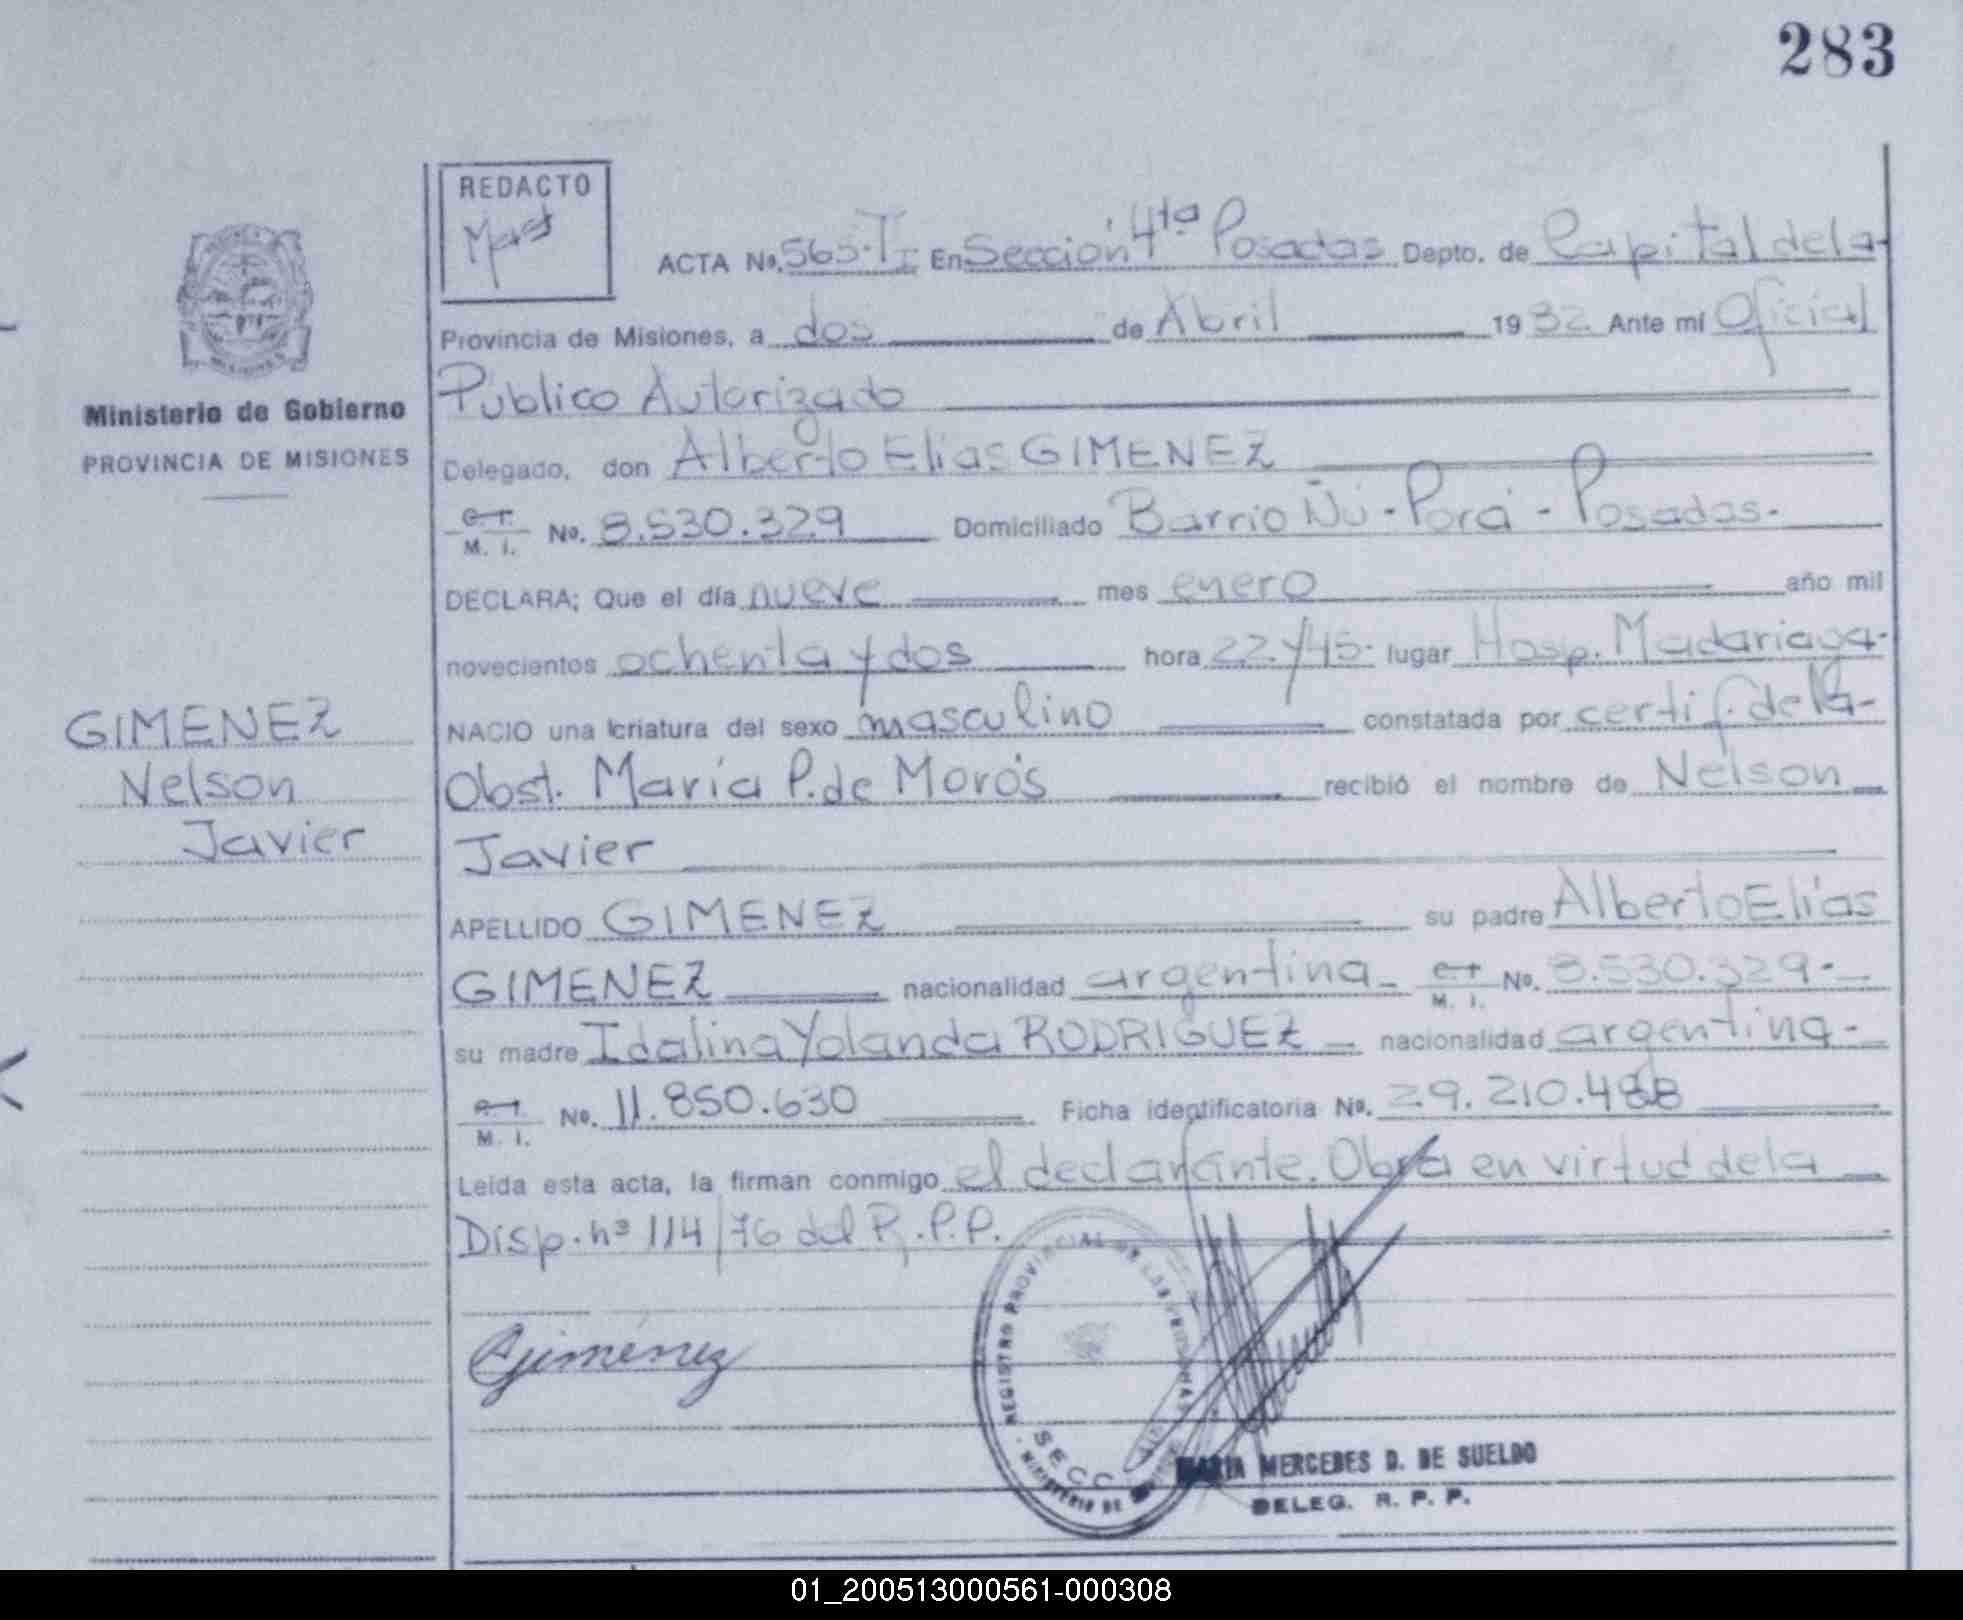 283
REDACTO
ACTA No. 565·TI En Sección 4ta Posadas Depto. de Capital de la-
Provincia de Misiones, a dos de Abril 1982 Ante mí Oficial
Público Autorizado
Ministerio de Gobierno
PROVINCIA DE MISIONES
Delegado, don Alberto Elías GIMENEZ
M. I. No. 8.530.329 Domiciliado Barrio Ñú-Porá - Posadas.
DECLARA; Que el día nueve mes enero año mil
novecientos ochenta y dos hora 22 y 45 lugar Hosp. Madariaga-
NACIO una criatura del sexo masculino constatada por certif. de la-
Obst. María P. de Morós recibió el nombre de Nelson
Javier
GIMENEZ
Nelson
Javier
APELLIDO GIMENEZ su padre Alberto Elías
GIMENEZ nacionalidad argentina M. I. No. 8.530.329.-
su madre Idalina Yolanda RODRIGUEZ nacionalidad argentina.-
M. I. No. 11.850.630 Ficha identificatoria No. 29.210.488
Leida esta acta, la firman conmigo el declarante. Obra en virtud de la
Disp. nº 114/76 del R.P.P.
Giménez
REGISTRO PROVINCIAL DE LAS PERSONAS
SECC
MINISTERIO DE
MARIA MERCEDES D. DE SUELDO
DELEG. R. P. P.
01_200513000561-000308